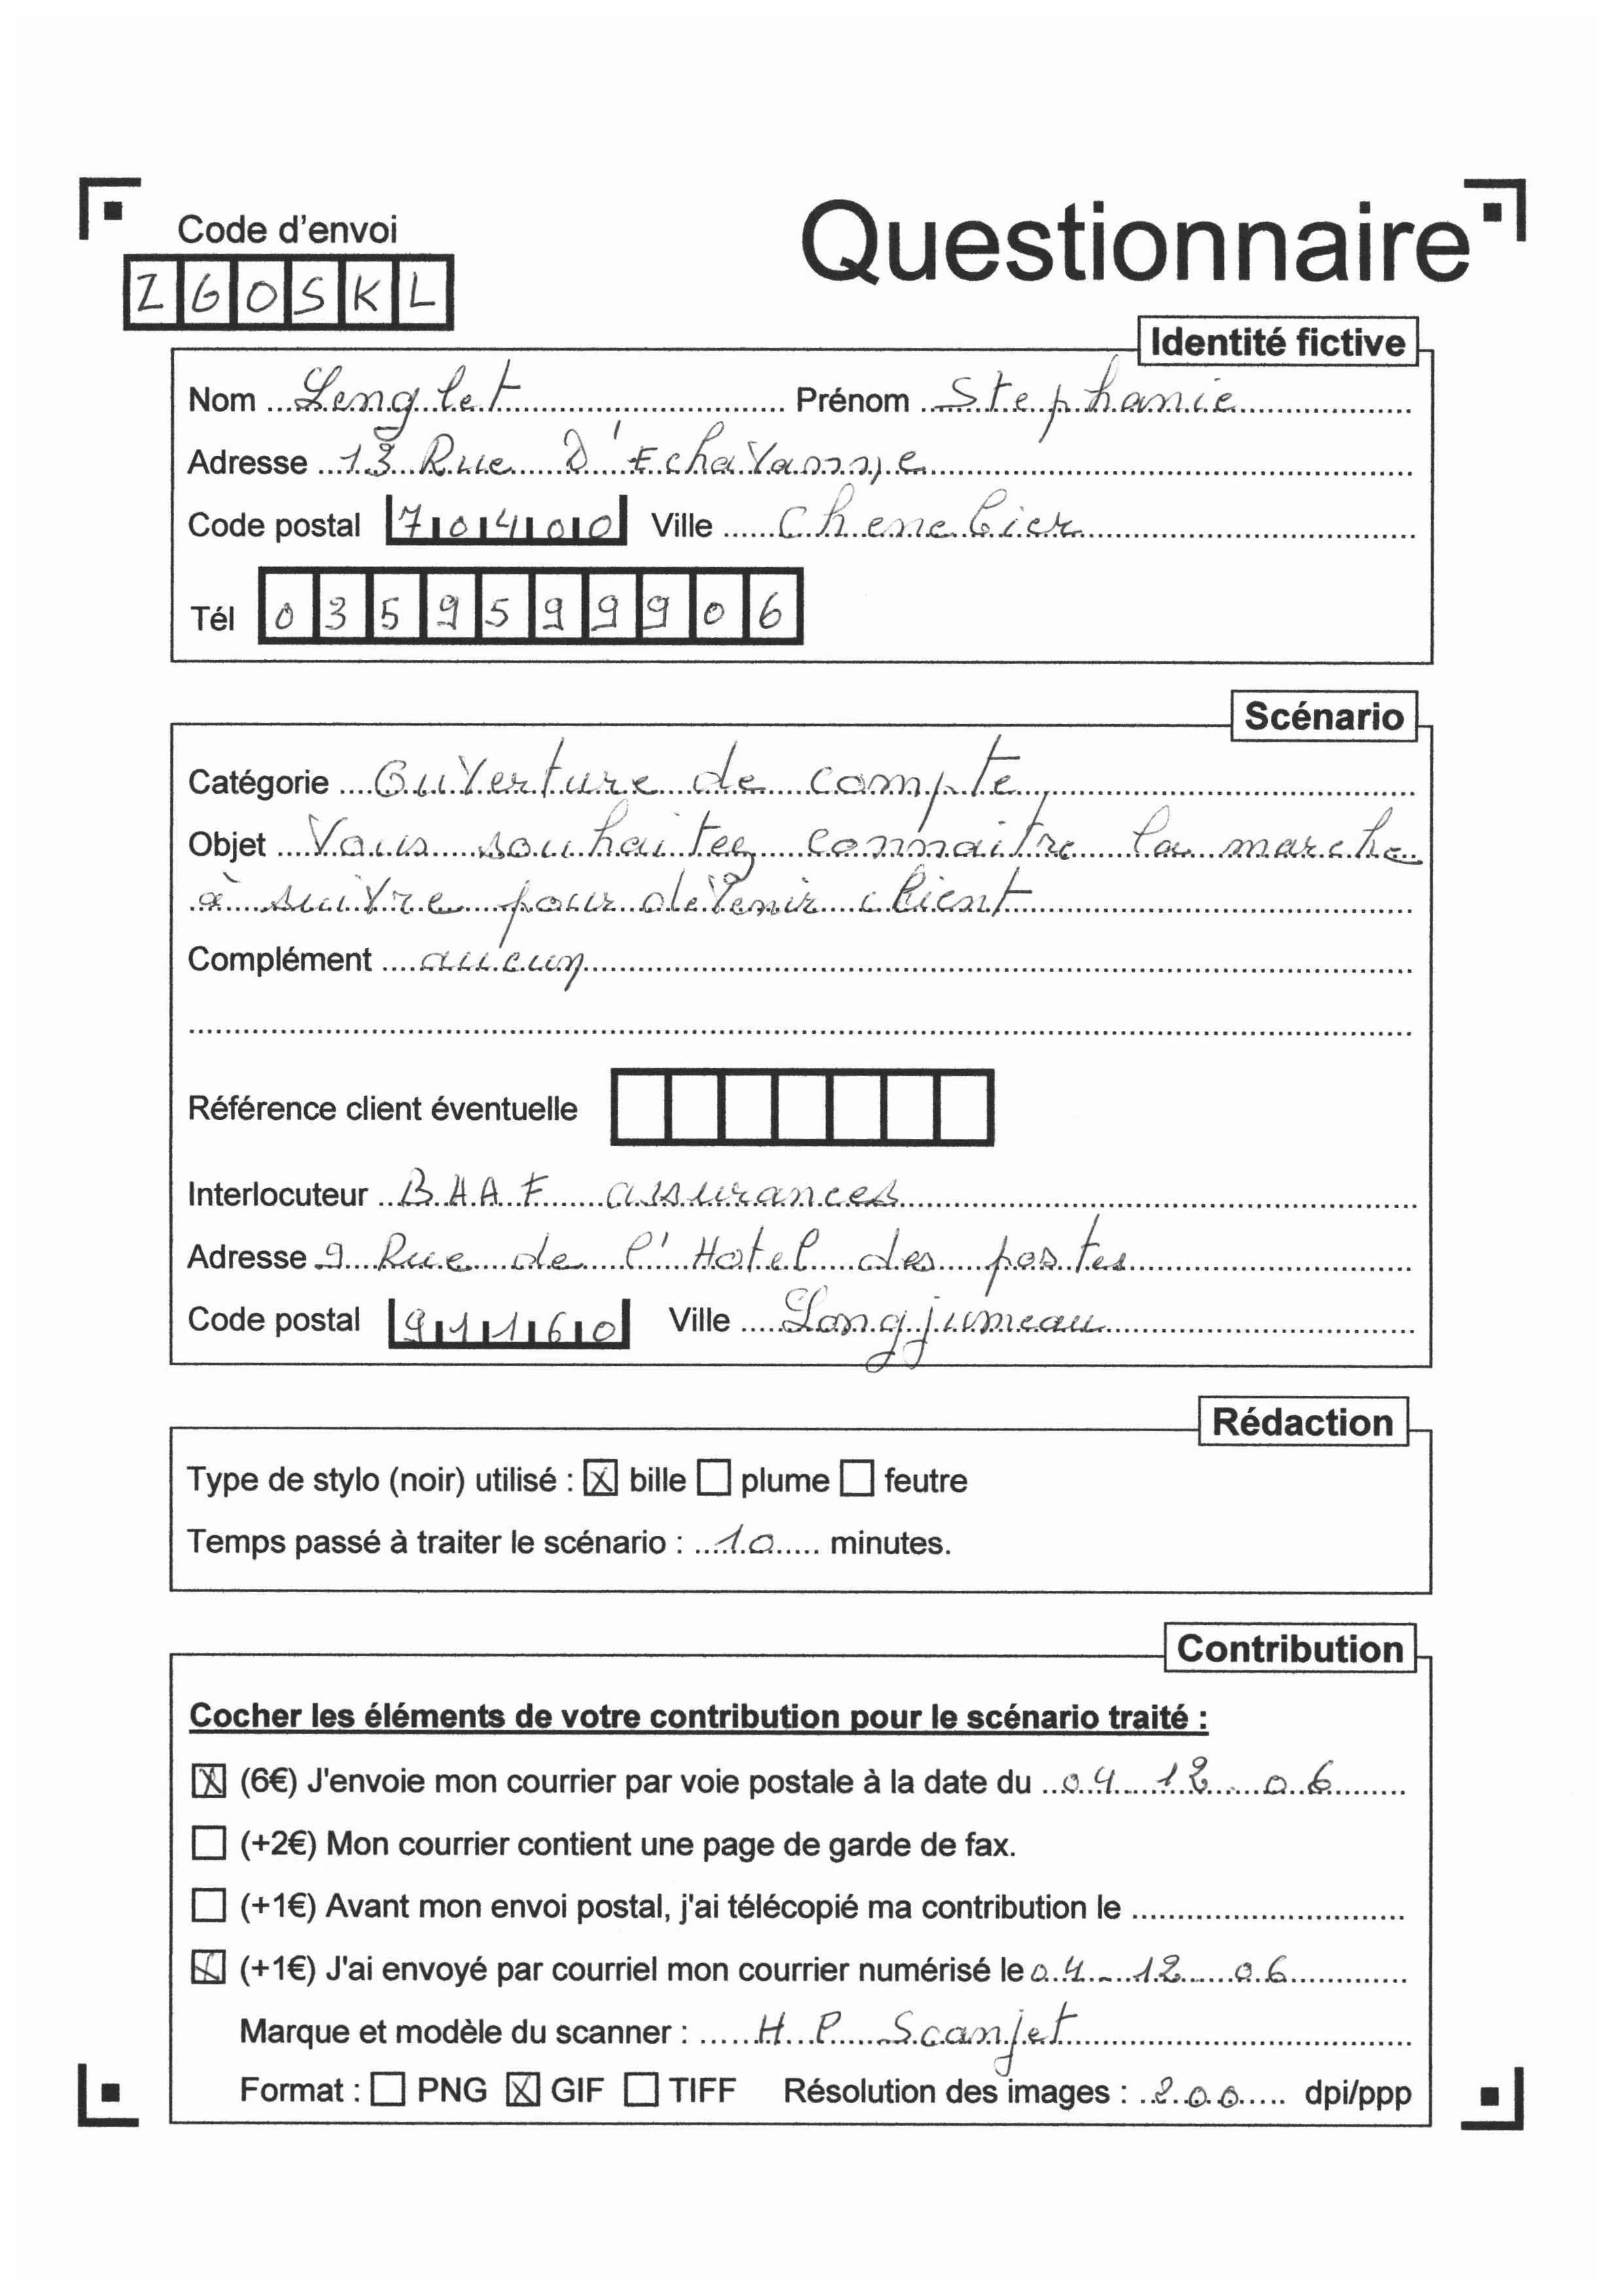 Code d'envoi
Questionnaire
Z G O S K L
Identité fictive
Nom Lenglet Prénom Stephanie
Adresse 13 Rue D'Echavanne
Code postal 70400 Ville Chenebier
Tél 0359599906
Scénario
Catégorie Ouverture de compte
Objet Vous souhaitez connaitre la marche
à suivre pour devenir client
Complément aucun
Référence client éventuelle
Interlocuteur BHAF assurances
Adresse 9 Rue de l'Hotel des postes
Code postal 91160 Ville Longjumeau
Rédaction
Type de stylo (noir) utilisé : X bille plume feutre
Temps passé à traiter le scénario : 10 minutes.
Contribution
Cocher les éléments de votre contribution pour le scénario traité :
X (6€) J'envoie mon courrier par voie postale à la date du 04 12 06
(+2€) Mon courrier contient une page de garde de fax.
(+1€) Avant mon envoi postal, j'ai télécopié ma contribution le
X (+1€) J'ai envoyé par courriel mon courrier numérisé le 04 12 06
Marque et modèle du scanner : HP Scanjet
Format : PNG X GIF TIFF Résolution des images : 200 dpi/ppp